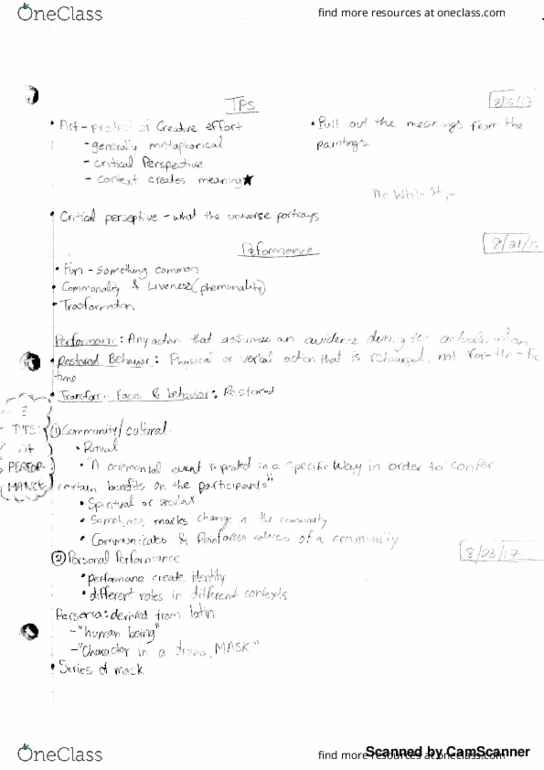 OneClass
find more resources at oneclass.com
TPS
• Art - product of Creative effort
- generally metaphorical
- critical Perspective
- context creates meaning★
• Pull out the meanings from the
paintings
The Whole
• Critical perseptive - what the universe portrays
Performance
8/21/17
• Fun - Something common
• Commonality & Liveness (phemonality)
• Trasformation
Performance: Any action that assumes an audience during its actualization
• Restored Behavior: Physical or verbal action that is rehearsed, not for-the-
time
• Transform Faces & behavior: Restored
3
TYPES
OF
PERFOR-
MANCE
① Community/cultural
• Ritual
• "A ceremonial event repeated in a specific way in order to confer
certain benefits on the participants"
• Spiritual or secular
• Sometimes marks change in the community
• Communicates & Reinforces values of a community
8/23/17
② Personal Performance
• performane create identity
• different roles in different contexts
Persona: derived from latin
- "human being"
- "Character in a drama, MASK"
• Series of mask
OneClass
find more resources at oneclass.com
Scanned by CamScanner